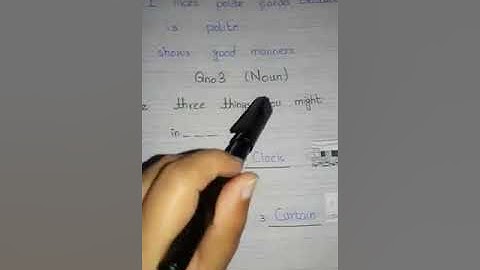 polite panda
is polite
shows good manners
Qno3 (Noun)
three things you might
in _ _ _
Clock
3. Curtain